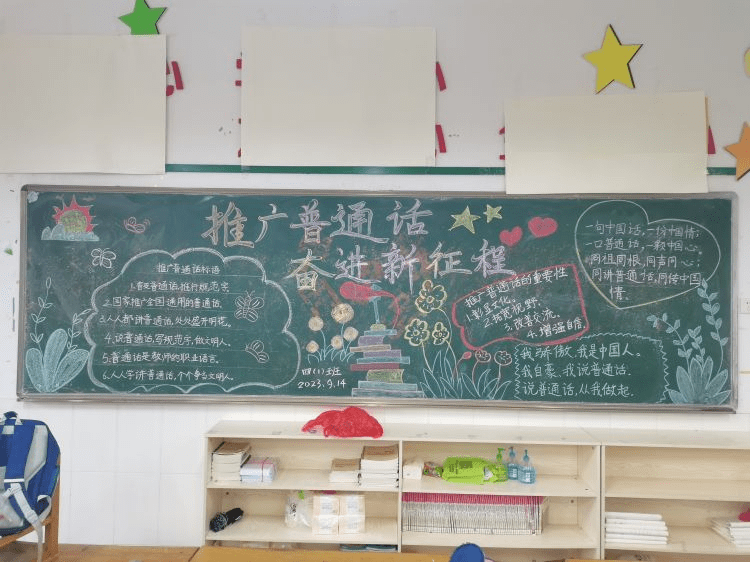 推广普通话
奋进新征程
推广普通话标语
1.普及普通话,推行规范字.
2.国家推广全国通用的普通话.
3.人人都讲普通话,处处盛开明花。
4.说普通话,写规范字,做文明人。
5.普通话是教师的职业语言。
6.人人学讲普通话,个个争当文明人.
四(1)班
2023.9.14
推广普通话的重要性
1.彰显文化。
2.拓宽视野.
3.改善交流.
4.增强自信.
一句中国话,一份中国情;
一口普通话,一颗中国心。
同祖同根,同声同心;
同讲普通话,同传中国
情.
我骄傲,我是中国人。
我自豪,我说普通话.
说普通话,从我做起.